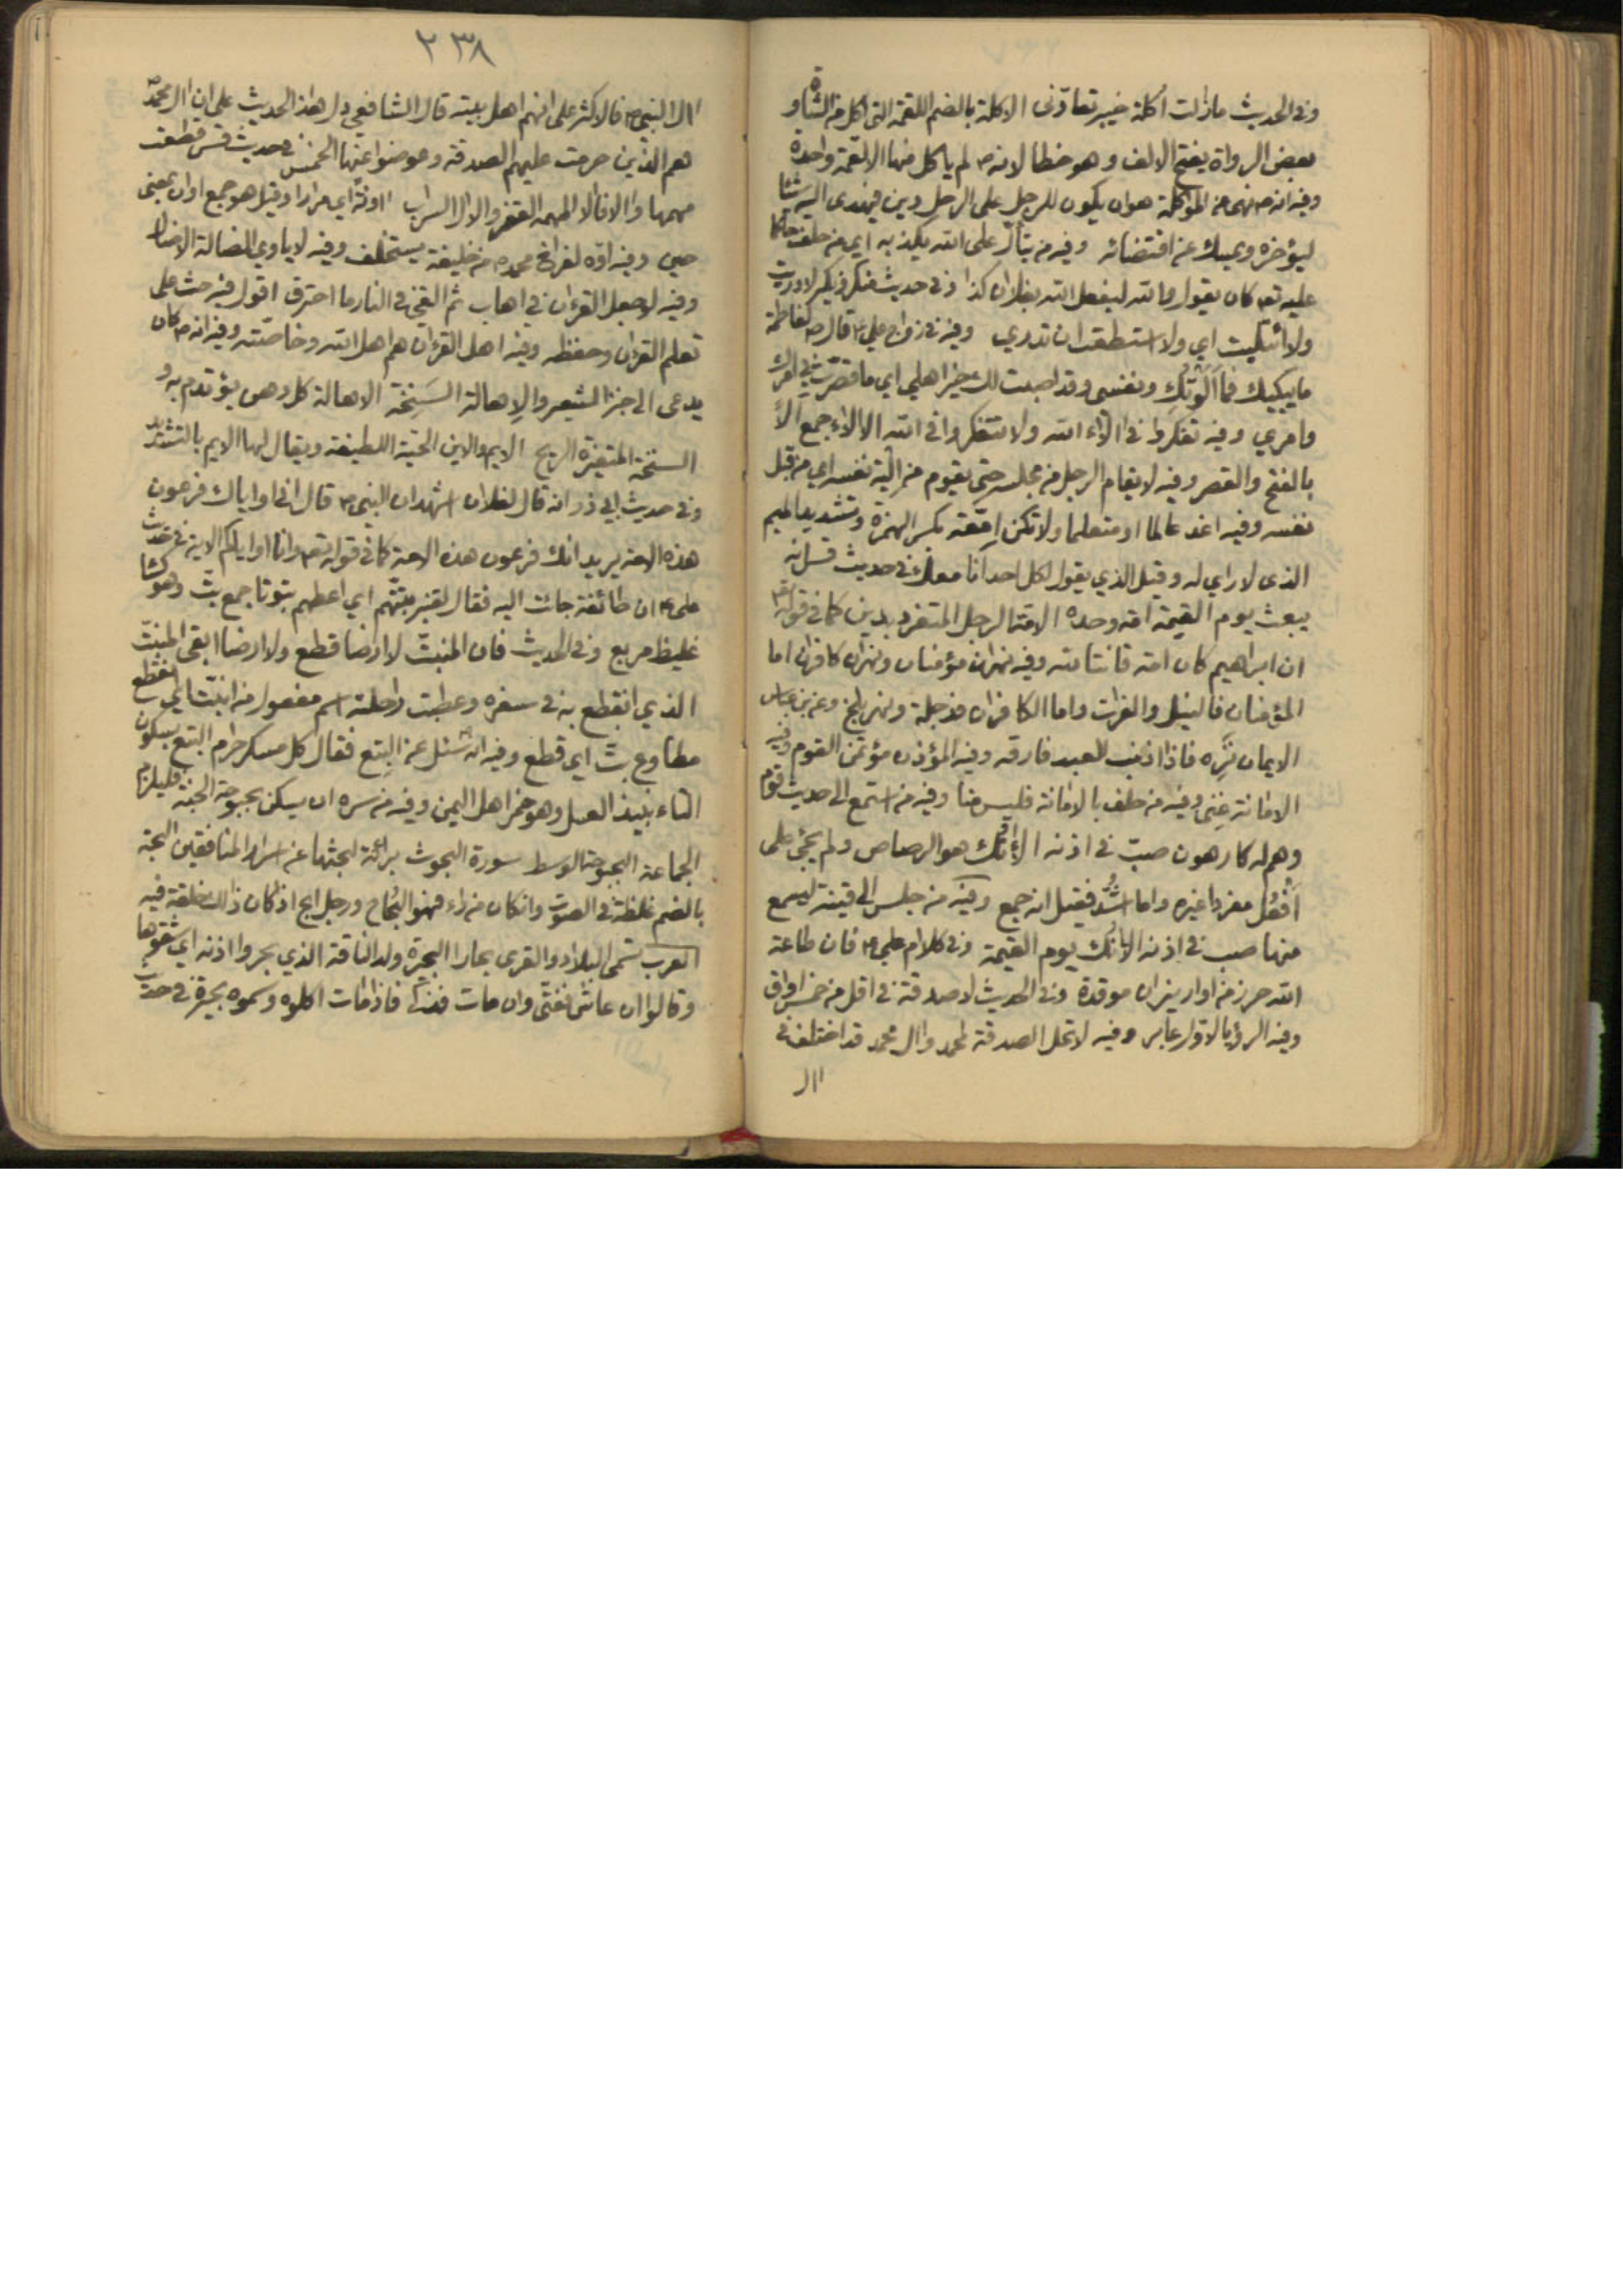 وفى الحديث مازالت اُكلة خيبر تعادّنى الاكلة بالضم اللقمة التى اكل من الشاة و
بعض الرواة يفتح الالف و هو خطا لانه ص لم ياكل منها الا لقمة واحدة
وفيه انه ص نهى عن المؤاكلة هو ان يكون للرجل على الرجل دين فيهدى اليه شيئا
ليؤخره ويمسك عن اقتضائه وفيه من يتألّ على الله يكذبه اي من حلف حاكما
عليه تعه كان يقول والله ليفعل الله بفلان كذا وفى حديث منكر ونكير لا دريت
ولا ائتليت اي ولا استطعت ان تدري وفيه فى زواج علي ع قال ص لفاطمة
مايبكيك فما اَلَوْتُكِ ونفسى وقد اصبت لك خير اهلي اي ما قصرت في امرك
وامري وفيه تفكروا فى الاء الله ولا تتفكروا فى الله الالاء جمع الاً
بالفتح والقصر وفيه لا يقام الرجل من مجلسه حتى يقوم من الية نفسه اي من قبل
نفسه وفيه اغد عالما او متعلما ولا تكن اِمّعة بكسر الهمزة وتشديد الميم
الذى لا راي له وقيل الذي يقول لكل احد انا معك فى حديث قس انه
يبعث يوم القيمة امة وحده الامة الرجل المتفرد بدين كما فى قوله تعه
ان ابراهيم كان امة قانتا لله وفيه نهران مؤمنان ونهران كافران اما
المؤمنان فالنيل والفرات واما الكافران فدجلة ونهر بلخ وعن بن عباس
الايمان نَزِه فاذا اذنب العبد فارقه وفيه المؤذن مؤتمن القوم وفيه
الامانة غِنى وفيه من حلف بالامانة فليس منا وفيه من استمع الى حديث قوم
وهم له كارهون صبّ فى اذنه الاٰنُك هو الرصاص ولم يجئ على
اَفْعُل مفردا غيره واما اشُدّ فقيل انه جمع وفيه من جلس الى قينة ليسمع
منها صب فى اذنه الانك يوم القيمة وفى كلام علي ع فان طاعة
الله حرز من اوار نيران موقدة وفى الحديث لا صدقة فى اقل من خمس اواق
وفيه الرؤيا لاول عابر وفيه لا تحل الصدقة لمحمد وال محمد قد اختلف فى
اال
٢٣٨
اال النبى ص فالاكثر على انهم اهل بيته قال الشافعي دل هذا الحديث على ان ال محمد ص
هم الذين حرمت عليهم الصدقة وعوضوا عنها الخمس فى حديث قس قطعت
مهمها واالا فاالا المهمه القفر والاال السراب ااونة اي مرارا وقيل هو جمع اوان بمعنى
حين وفيه اوّه لفراخ محمد ص من خليفة يستخلف وفيه لا ياوي الضالة الا ضال
وفيه لو جعل القرءان فى اهاب ثم القى فى النار ما احترق اقول فيه حث على
تعلم القرءان وحفظه وفيه اهل القرءان هم اهل الله وخاصّته وفيه انه ص كان
يدعى الى خبز الشعير والاِهالة السَنِخَة الاهالة كل دهن يؤتدم به و
السنخة المتغيرة الريح الايم والاين الحيّة اللطيفة ويقال لها الايم بالتشديد
وفى حديث ابى ذر انه قال لفلان اشهد ان النبى ص قال انى او اياك فرعون
هذه الامة يريد انك فرعون هذه الامة كما فى قوله تعه وانا او اياكم الاية فى حديث
على ع ان طائفة جائت اليه فقال لقنبر بتّتهم اي اعطهم بتوتا جمع بتّ وهو كساء
غليظ مربع وفى الحديث فان المنبتّ لا ارضا قطع ولا ارضا ابقى المنبتّ
الذي انقطع به فى سفره وعطبت راحلته اسم مفعول من انبتّ اي انقطع
مطاوع بتّ اي قطع وفيه انه سئل عن البِتع فقال كل مسكر حرام البتع بسكون
التاء نبيذ العسل وهو خمر اهل اليمن وفيه من سره ان يسكن بحبوحة الجنة فليلزم
الجماعة البحبوحة الوسط سورة البحوث برائة لبحثها عن اسرار المنافقين البحّة
بالضم غلظة فى الصوت وان كان من داء فهو البُحاح ورجل ابح اذا كان ذلك خلقة فيه
العرب تسمى البلاد والقرى بحارا البحيرة ولد الناقة الذي بحروا اذنه اي شقوها
وقالوا ان عاش ففتى وان مات فذكى فاذا مات اكلوه وسموه بحيرة فى حديث